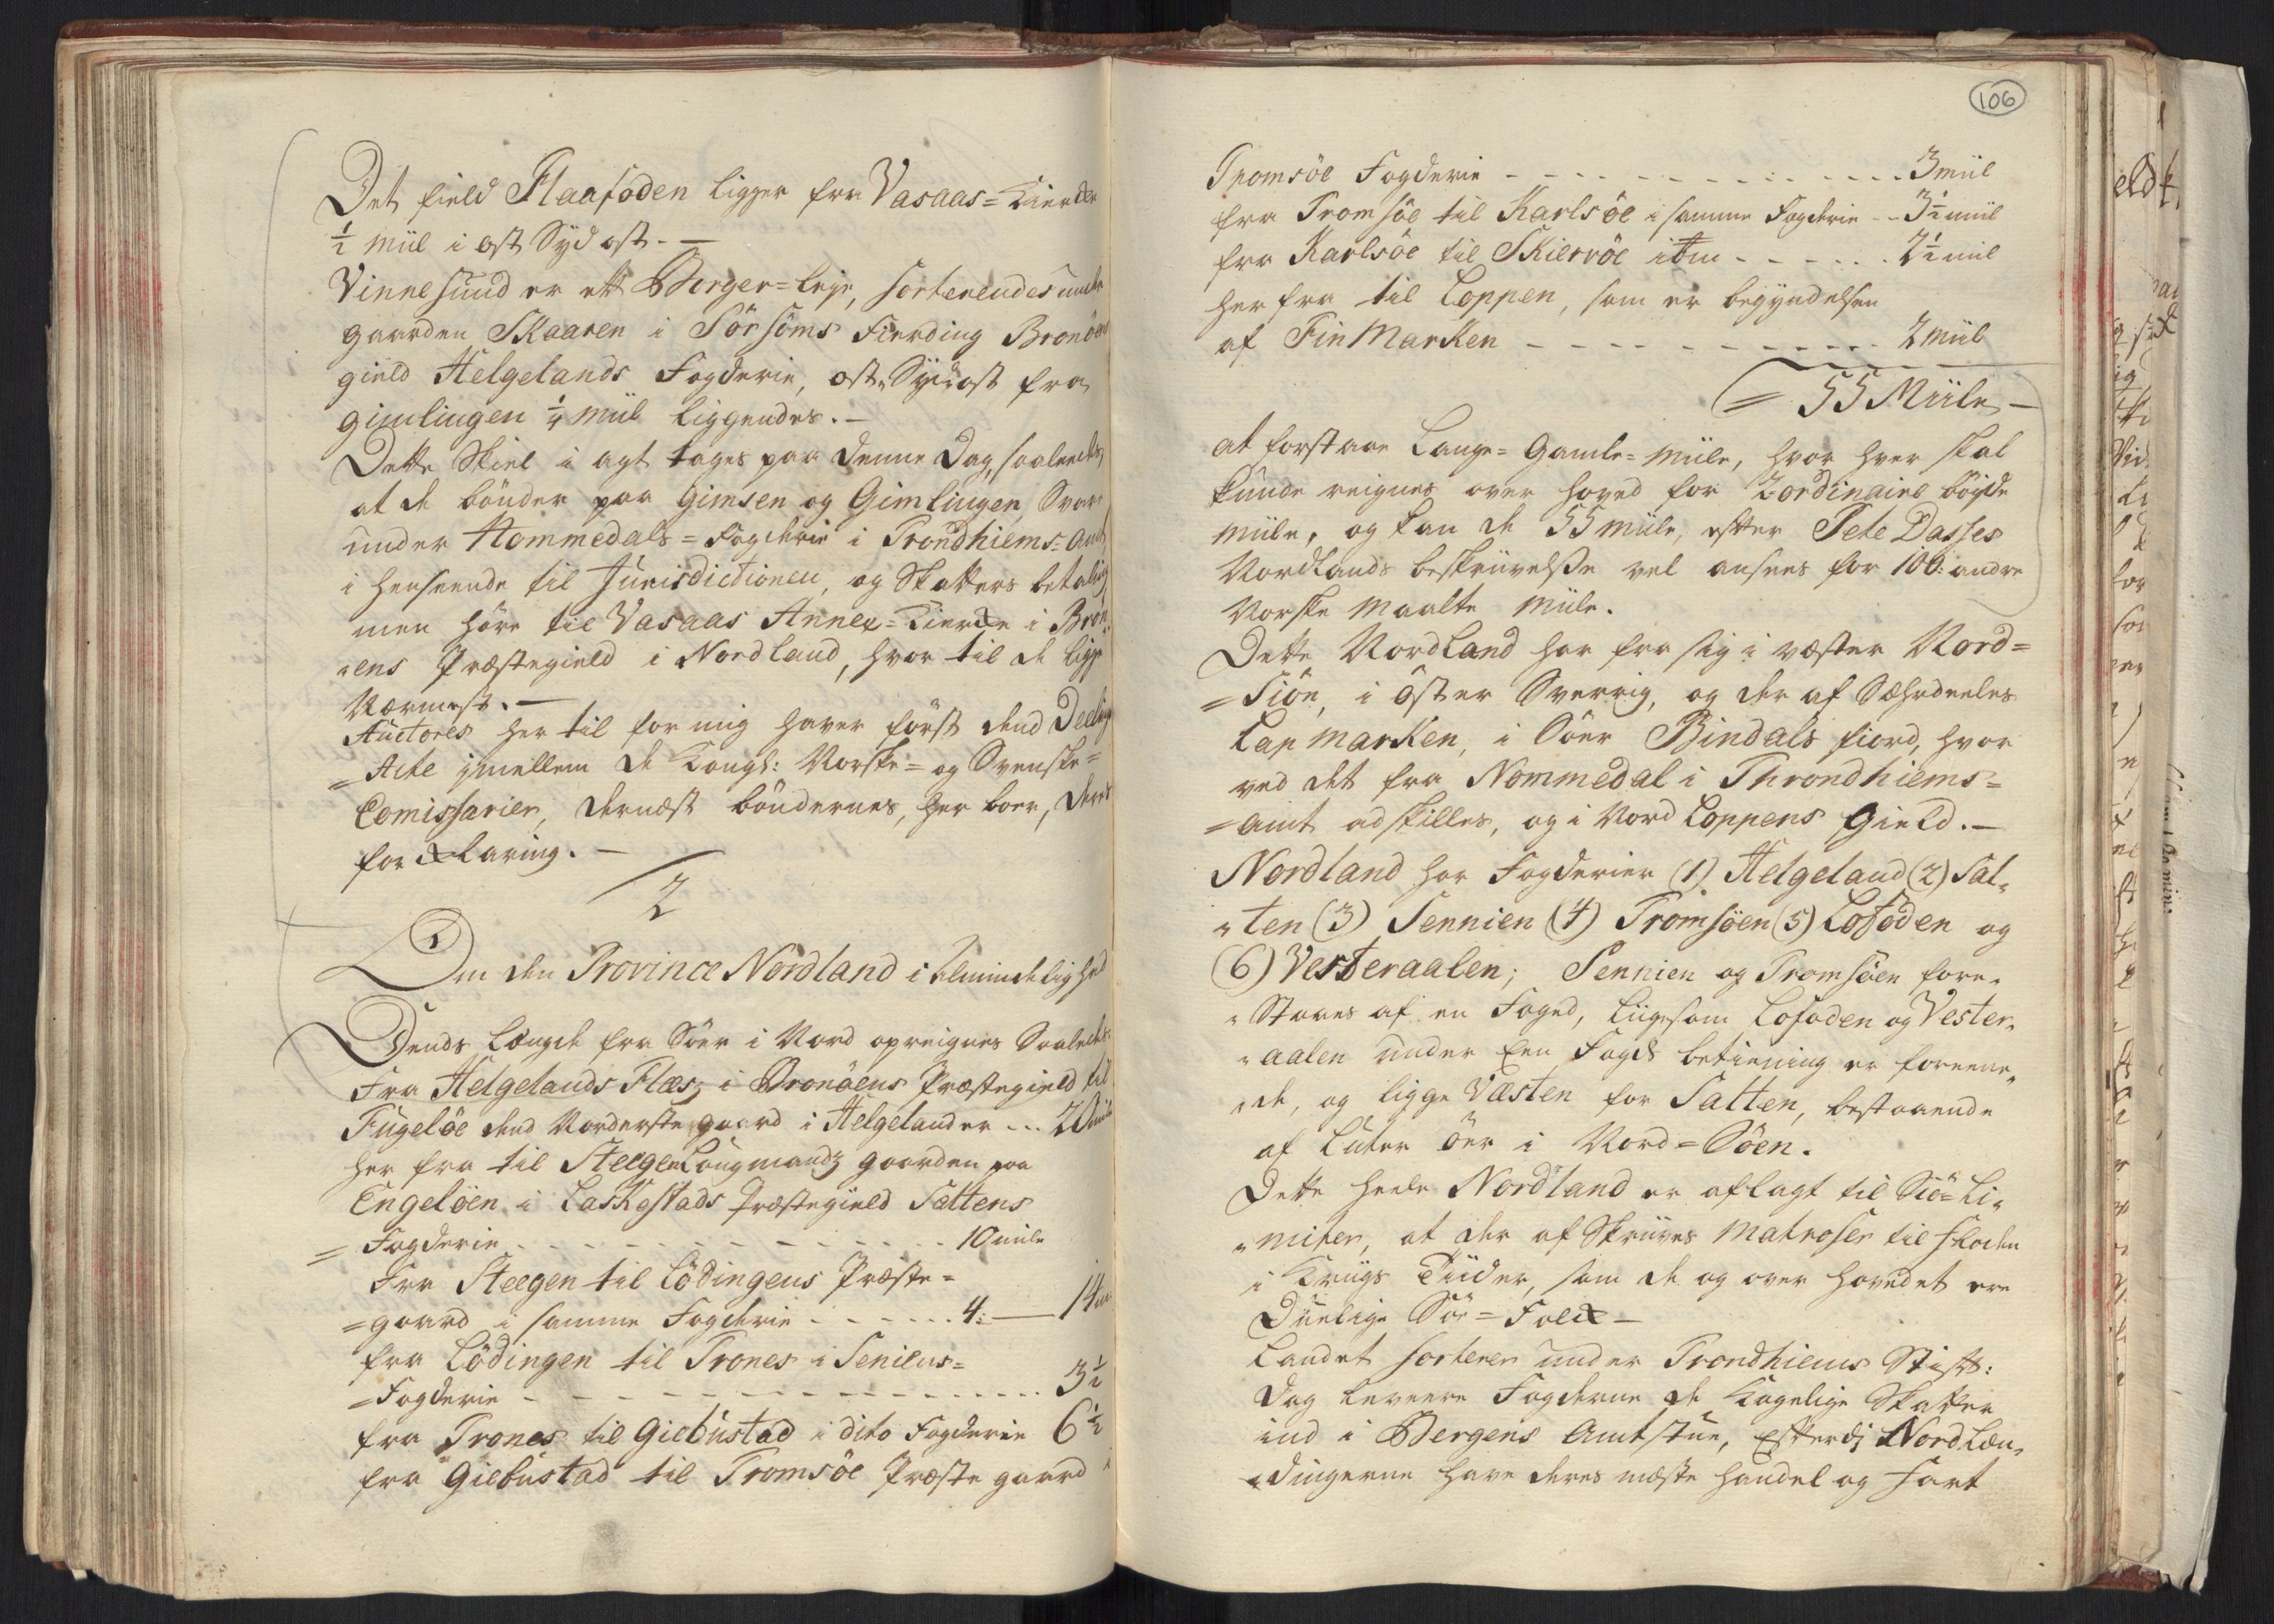 Det field Flaafoden ligger fra Vasaas=Kierke
½ miil i ost Sydost. —
Vinnesund er ett Borger=leje, sorterendes under
gaarden Skaaren i Sörsöms Fierding Brönöe
gield Helgelands Fogderie, ost Sydost fra
gimlingen ¼ miil liggendes. —
Dette Skiel i agt tages paa denne Dag, saaledes,
at de bönder paa Gimsen og Gimlingen, Svar
under Nommedals=Fogderie i Trondhiems=Amt,
i henseende til Jurisdictionen, og Skatters betaling
men höre til Vasaas Annex=Kierke i Brön
„ens Præstegield i Nordland, hvor til de ligge
Nærmest. —
Auctores her til for mig haver först dend Deelings
=Acte jmellem de Kongl: Norske= og Svenske=
Comissarier, dernæst böndernes, her boer, deres
forklaring. —
2
Om den Province Nordland i almindelighed
Dends Længde fra Söer i Nord opreignes Saaledes
Fra Helgelands Flæs, i Brönöens Præstegield til
Fugelöe dend Norderste gaard i Helgeland er ... 20 miile
her fra til Steegen Laugmandz gaarden paa
Engelöen i Laskestads Præstegield Saltens
=Fogderie - - - - - - 10 miile
Fra Steegen til Lödingens Præste=
=gaard i samme Fogderie - - - - - 4: — 14 m
fra Lödingen til Trones i Seniens=
=Fogderie - - - - - - 3½
fra Trones til Giebustad i dito Fogderie 6½
fra Giebustad til Tromsöe Præste gaard i
106
Tromsöe Fogderie - - - - - - 3 miil
fra Tromsöe til Karlsöe i samme Fogderie - - 3½ miil
fra Karlsöe til Skiervöe itm - - - - - 2½ miil
her fra til Loppen, som er begyndelsen
af FinMarken - - - - - - 2 miil
= 55 Miile —
at forstaae Lange=Gamle=miile, hvor hver skal
kunde reignes over hoved for 2 ordinaire böyde
miile, og kan de 55 miile, efter Pete Dasses
Nordlands beskriivelsse vel ansees for 100: andre
Norske maalte miile.
Dette Nordland har fra sig i væster Nord=
=Siön, i öster Sverrig, og der af Særdeeles
Lapmarken, i Söer Bindals fiord, hvor
ved det fra Nommedal i Throndhiems=
=amt adskilles, og i Nord Loppens Gield. —
Nordland har Fogderier (1) Helgeland (2) Sal„
„ten (3) Sennien (4) Tromsöen (5) Lofoden og
(6) Vesteraalen; Sennien og Tromsöen fore„
„staaes af en Foged, liigesom Lofoden og Vester„
„aalen under Een Fogeds betiening er foreene„
„de, og ligge Væsten for Salten, bestaaende
af Luter öer i Nord=Söen.
Dette heele Nordland er aflagt til Siö=Li„
„miter, at der af Skriives Matroser til floden
i Kriigs Tiider, som de og over hovedet ere
Duelige Söe=Folck —
Landet sorterer under Trondhiems Stift:
Dog leverer Fogderne de Kongelige Skatter
ind i Bergens Amtstue, Efterdj Nordlæn„
„dingerne have deres mæste handel og fart